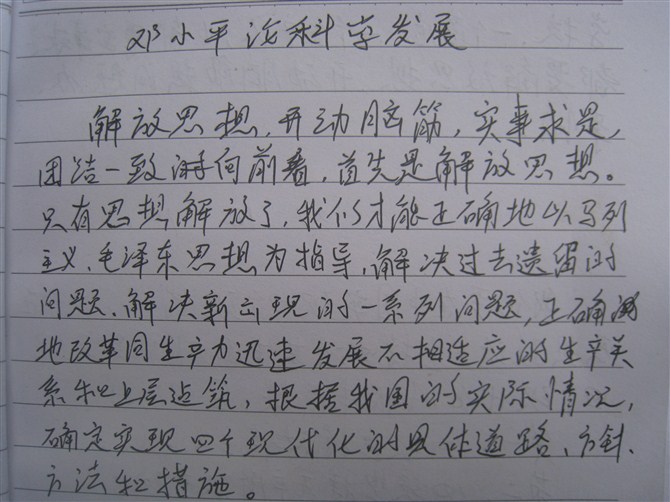 邓小平论科学发展
解放思想,开动脑筋,实事求是,
团结一致的向前看,首先是解放思想。
只有思想解放了,我们才能正确地以马列
主义、毛泽东思想为指导,解决过去遗留的
问题、解决新出现的一系列问题,正确
地改革同生产力迅速发展不相适应的生产关
系和上层建筑,根据我国的实际情况,
确定实现四个现代化的具体道路、方针、
方法和措施。